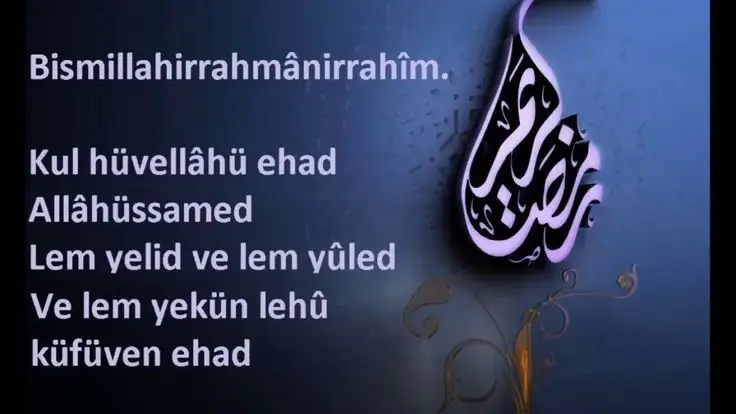 Bismillahirrahmânirrahîm.
Kul hüvellâhü ehad
Allâhüssamed
Lem yelid ve lem yûled
Ve lem yekün lehû
küfüven ehad
رمضان كريم